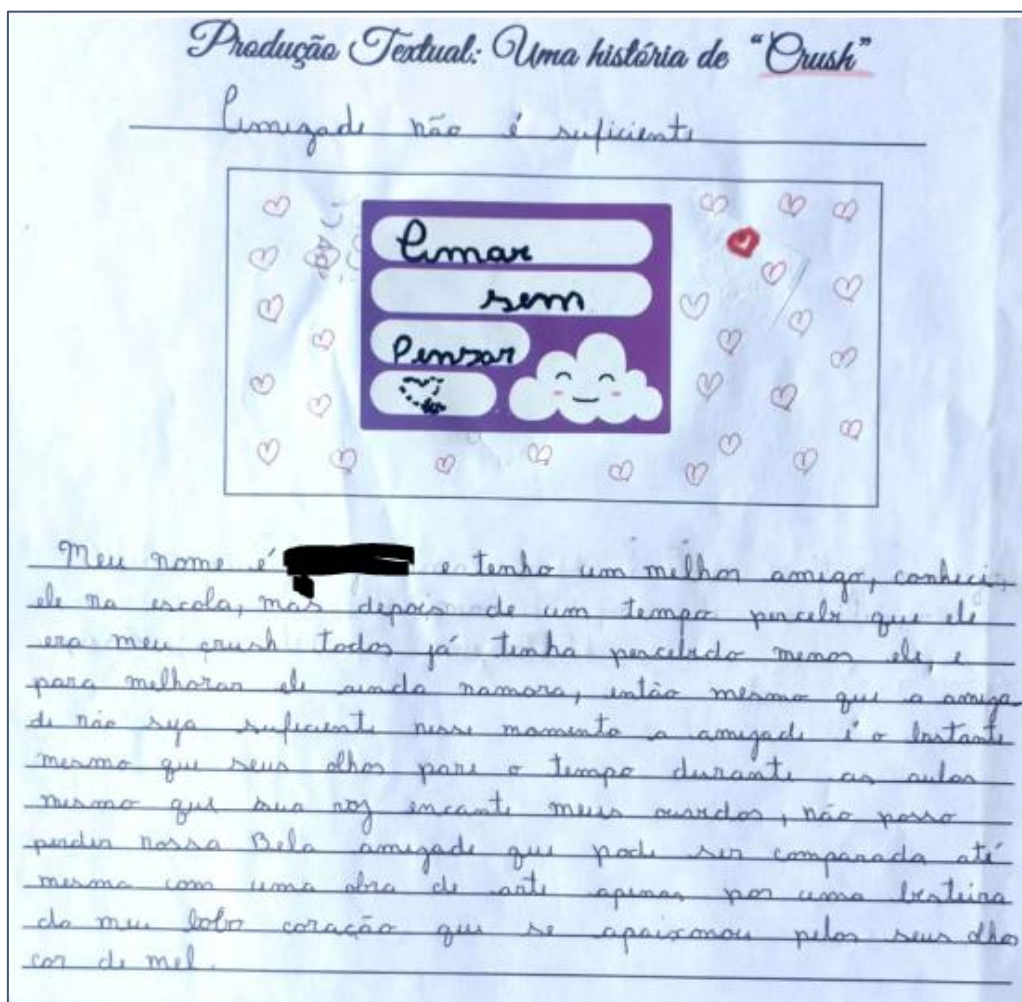 Produção Textual: Uma história de "Crush"
Amizade não é suficiente
Amar
sem
Pensar
Meu nome é e tenho um melhor amigo, conheci
ele na escola, mas depois de um tempo percebi que ele
era meu crush todos já tinha percebido menos ele, e
para melhorar ele ainda namora, então mesmo que a amiza
de não seja suficiente nesse momento a amizade é o bastante
mesmo que seus olhos pare o tempo durante as aulas
mesmo que sua voz encante meus ouvidos, não posso
perder nossa Bela amizade que pode ser comparada até
mesma com uma obra de arte apenas por uma besteira
do meu bobo coração que se apaixonou pelos seus olhos
cor de mel.